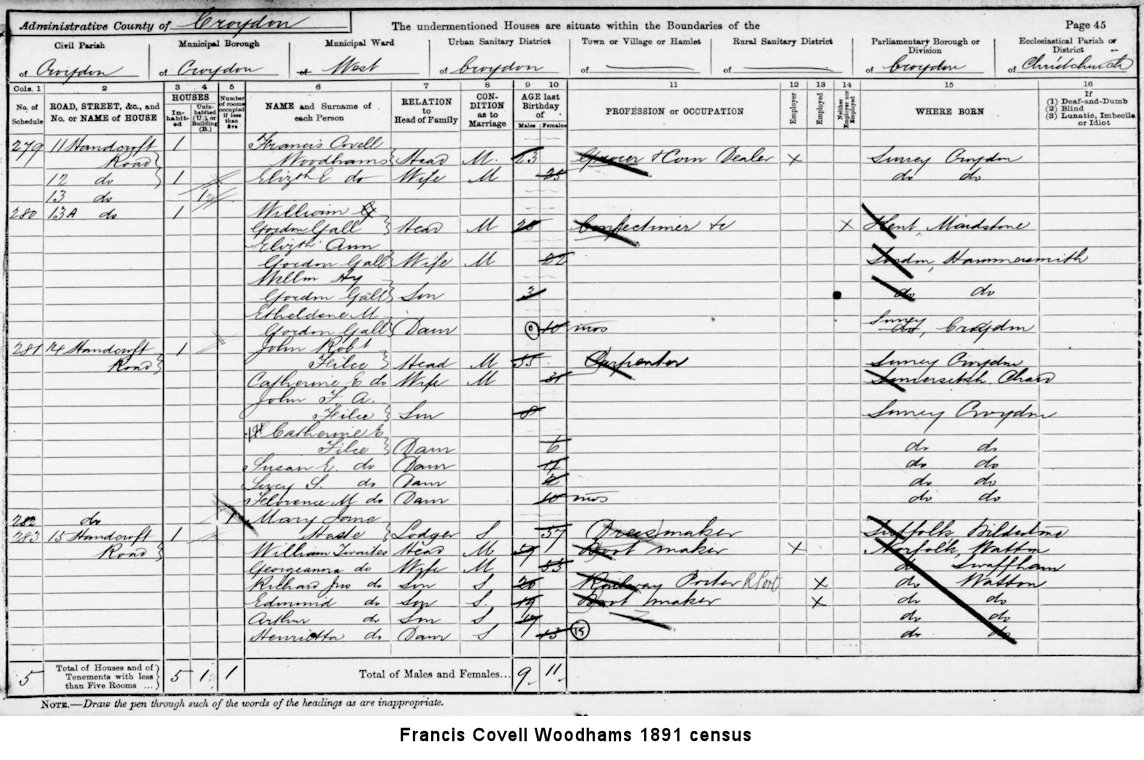 Administrative County of Croydon The undermentioned Houses are situate within the Boundaries of the Page 45
Civil Parish Municipal Borough Municipal Ward Urban Sanitary District Town or Village or Hamlet Rural Sanitary District Parliamentary Borough or Division Ecclesiastical Parish or District
of Croydon of Croydon of West of Croydon of of of Croydon of Christchurch
Cols. 1 2 3 4 5 6 7 8 9 10 11 12 13 14 15 16
No. of Schedule ROAD, STREET, &c., and No. or NAME of HOUSE HOUSES Inhabited Uninhabited (U.), or Building (B.) Number of rooms occupied if less than five NAME and Surname of each Person RELATION to Head of Family CONDITION as to Marriage AGE last Birthday of Males Females PROFESSION or OCCUPATION Employer Employed Neither Employer nor Employed WHERE BORN If (1) Deaf-and-Dumb (2) Blind (3) Lunatic, Imbecile or Idiot
279 11 Handcroft 1 Francis Covell
Road Woodhams Head M. 23 Grocer & Corn Dealer × Surrey Croydon
12 do 1 Elizth E do Wife M 25 do do
13 do 1
280 13A do 1 William
Gordon Gall Head M 28 Confectioner &c × Kent, Maidstone
Elizth Ann
Gordon Gall Wife M 22 London, Hammersmith
Willm Hy
Gordon Gall Son 3 do do
Etheldene M
Gordon Gall Daur 10 mos Surrey do, Croydon
281 14 Handcroft 1 John Robt
Road Filce Head M 35 Carpenter Surrey Croydon
Catherine E do Wife M 31 Somersetsh Chard
John F. A.
Filce Son 8 Surrey Croydon
Catherine E
Filce Daur 6 do do
Susan E. do Daur 4 do do
Lucy S. do Daur 2 do do
Florence M do Daur 10 mos do do
282 do 1 Mary Jane
283 15 Handcroft 1 Lodger S 37 Dressmaker Suffolk
Road William Head M Boot maker × Norfolk, Watton
Georgeanna do Wife M 53 do Swaffham
Richard Jno do Son S 20 Railway Porter × do Watton
Edmund do Son S. 19 Boot maker × do do
Arthur do Son S 17 do do
Henrietta do Daur S 13 15 do do
5 Total of Houses and of Tenements with less than Five Rooms ... 5 1 1 Total of Males and Females... 9 11
NOTE.—Draw the pen through such of the words of the headings as are inappropriate.
Francis Covell Woodhams 1891 census